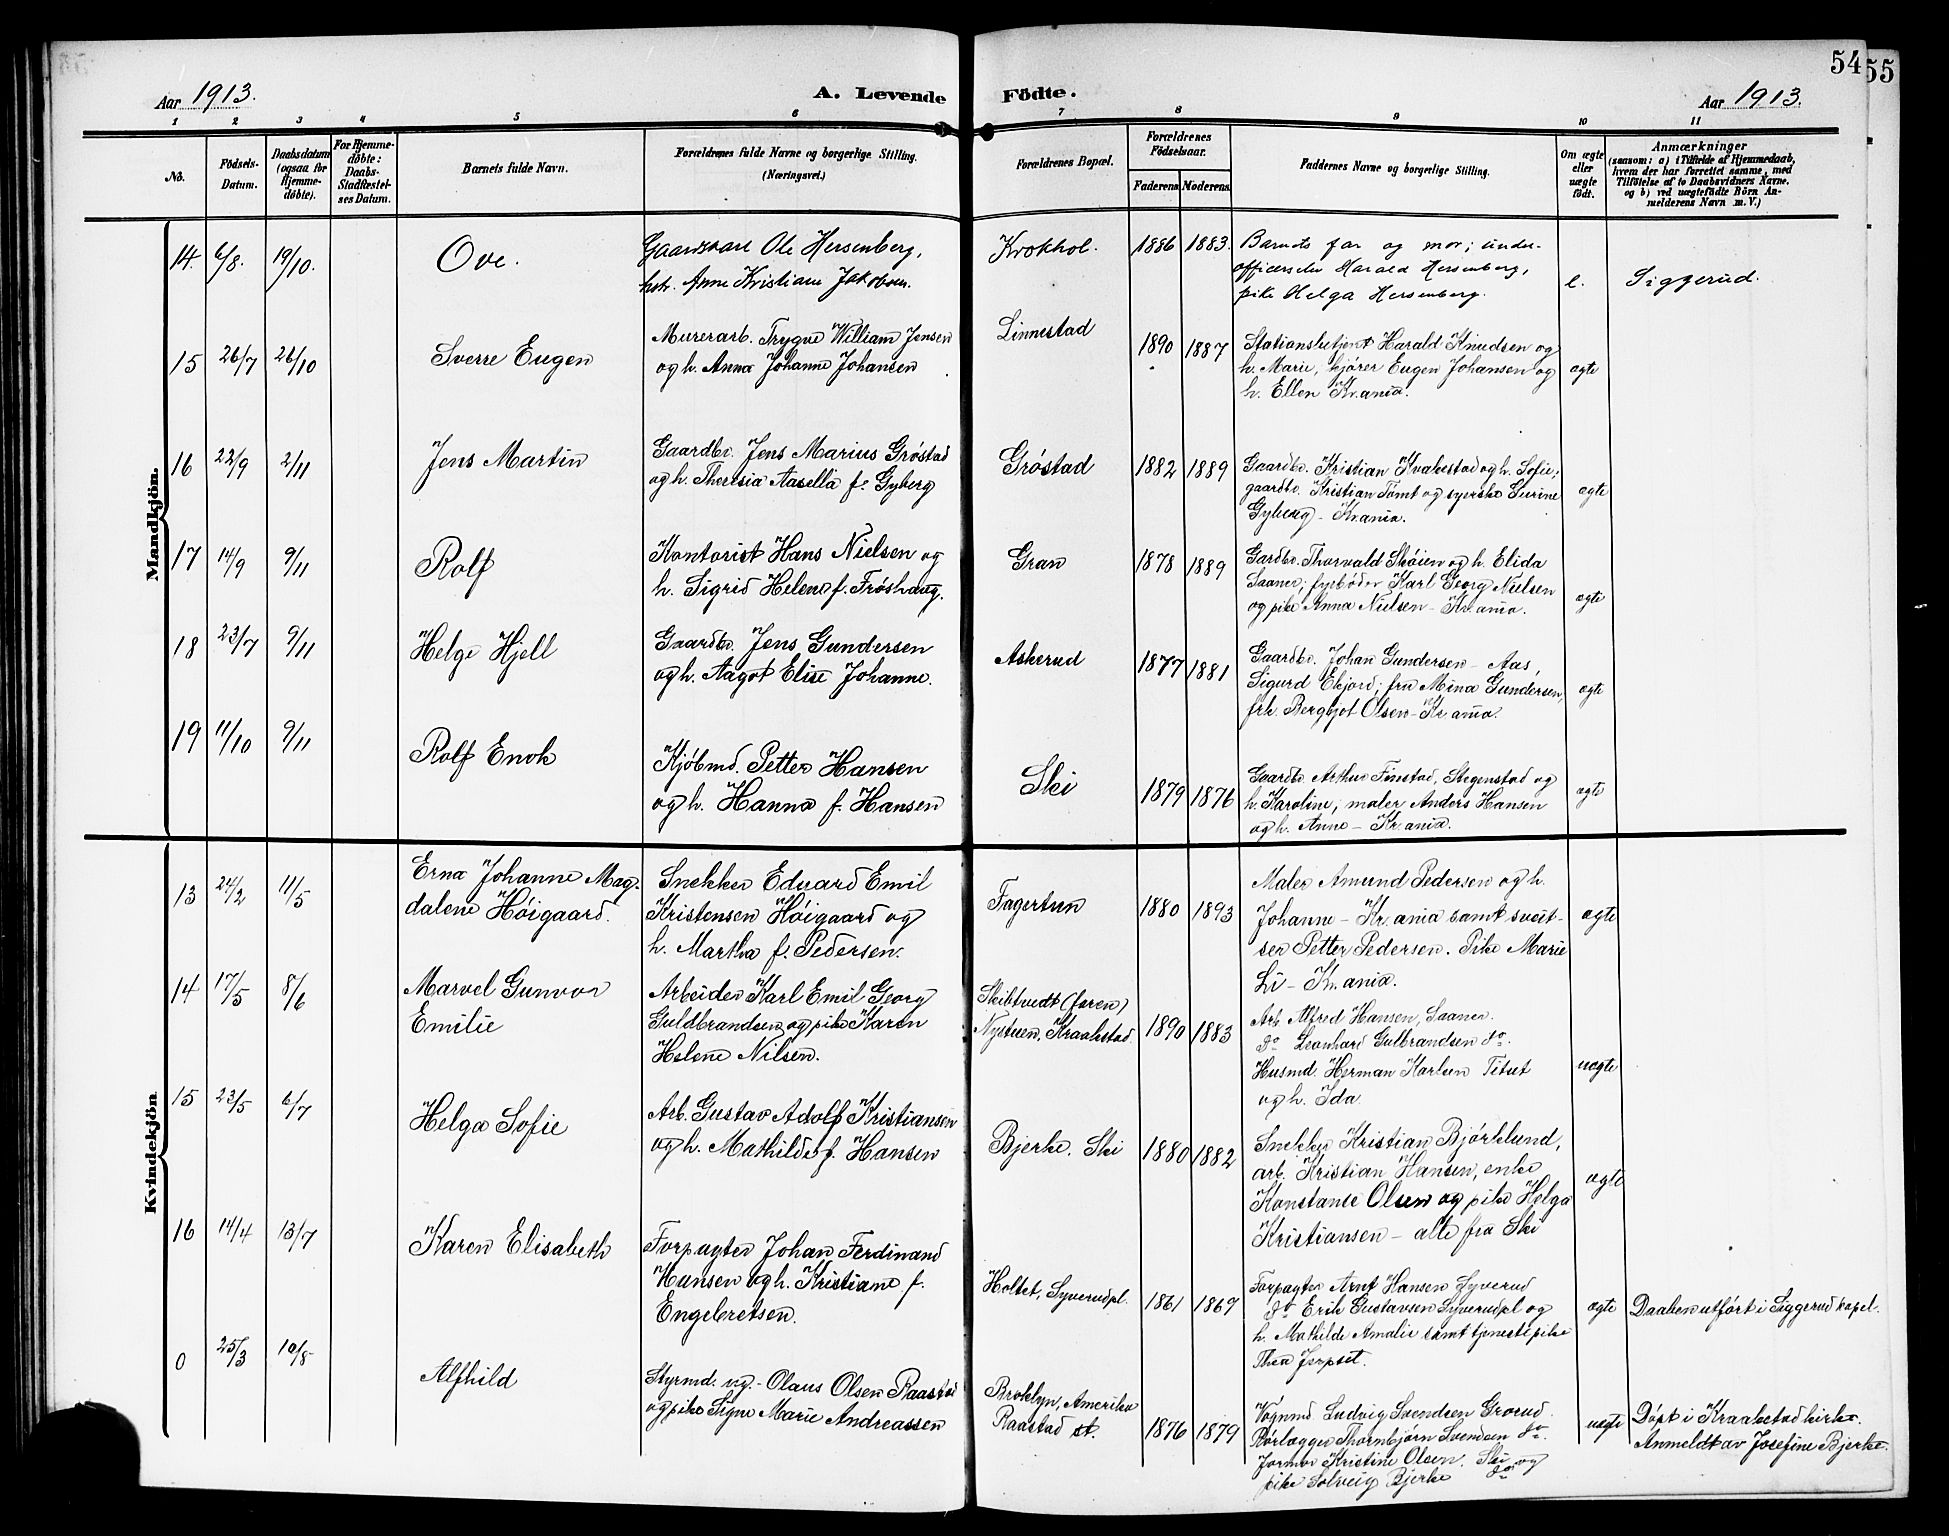 54
55
Aar 1913.
A. Levende Födte.
Aar 1913.
1 2 3 4 5 6 7 8 9 10 11
No.
Födsels-Datum.
Daabsdatum (ogsaa for Hjemme-döbte).
For Hjemme-döbte: Daabs-Stadfæstel-ses Datum.
Barnets fulde Navn.
Forældrenes fulde Navne og borgerlige Stilling. (Næringsvei.)
Forældrenes Bopæl.
Forældrenes Födselsaar.
Faderens Moderens
Faddernes Navne og borgerlige Stilling.
Om ægte eller uægte født.
Anmærkninger
(saasom: a) i Tilfælde af Hjemmedaab,
hvem der har forrettet samme, med
Tilföielse af to Daabsvidners Navne,
og b) ved uægtefödte Börn An-
melderens Navn m. V.)
Mandkjön.
14. 6/8. 19/10. Ove.
Ole Hersenberg,
hstr. Anne Kristiane Jakobsen.
Krokhol. 1886 1883.
Barnets far og mor; under-
officerselev Harald Hersenberg,
pike Helga Hersenberg.
e. Siggerud.
15 26/7 26/10 Sverre Eugen
Murerarb. Trygve William Jensen
og h. Anna Johanne Johansen
Linnestad 1890 1887
Stationsbetjent Harald Knudsen og
h. Marie, kjører Eugen Johansen og
h. Ellen Kr.ania.
ægte
16 22/9 2/11 Jens Martin
Gaardbr. Jens Marius Grøstad
og h. Theresia Aasella f. Gyberg
Grøstad 1882 1889
Gaardbr. Kristian Kvakestad og h. Sofie;
gaardbr. Kristian Tømt og syerske Surine
Gyberg - Kr.ania.
ægte
17 14/9 9/11 Rolf
Kontorist Hans Nielsen og
h. Sigrid Helene f. Frøshaug.
Gran 1878 1889
Gardbr. Thorvald Skøien og h. Elida
Saaner; fyrbøder Karl Georg Nielsen
og pike Anna Nielsen - Kr.ania.
ægte
18 23/7 9/11 Helge Hjell
Gaardbr. Jens Gundersen
og h. Aagot Elise Johanne.
Askerud 1877 1881
Gaardbr. Johan Gundersen - Aas,
Sigurd Ekjord; fru Mina Gundersen,
frk. Bergljot Olsen - Kr.ania.
ægte
19 11/10 9/11 Rolf Enok
Kjøbmd. Petter Hansen
og h. Hanna f. Hansen
Ski 1879 1876
Gaardbr. Arthur Finstad, Stegenstad og
h. Karoline; maler Anders Hansen
og h. Anne - Kr.ania.
ægte
Kvindekjön
13 24/2 11/5 Erna Johanne Mag-
dalene Høigaard.
Snekker Edvard Emil
Kristensen Høigaard og
h. Martha f. Pedersen.
Fagertun 1880 1893
Maler Amund Pedersen og h.
Johanne - Kr.ania samt sveit-
ser Petter Pedersen. Pike Marie
Li - Kr.ania.
ægte
14 17/5 8/6 Marvel Gunvor
Emilie
Arbeider Karl Emil Georg
Guldbrandsen og pike Karen
Helene Nilsen.
Skibtvedt (faren)
Nystuen, Kraakstad. 1890 1883
Arb. Alfred Hansen, Saaner.
do Leonhard Gulbrandsen do.
Husmd. Herman Karlsen Titut
og h. Ida
uægte
15 23/5 6/7 Helga Sofie
Arb. Gustav Adolf Kristiansen
og h. Mathilde f. Hansen
Bjerke. Ski 1880 1882
Snekker Kristian Bjørklund,
arb. Kristian Hansen, enke
Konstanse Olsen og pike Helga
Kristiansen - alle fra Ski
ægte
16 14/4 13/7 Karen Elisabeth
Forpagter Johan Ferdinand
Hansen og h. Kristiane f.
Engebretsen.
Holtet, Syverudpl. 1861 1869
Forpagter Arnt Hansen Syverud
do Erik Gustavsen Syverudpl og
h. Mathilde Amalie samt tjenestepike
Thea
ægte Daaben utført i Siggerud kapel.
0 25/3 10/8 Alfhild
Styrmd. ug. - Olaus Olsen Raastad
og pike Signe Marie Andreassen
Broklyn, Amerika
Raastad st. 1876 1879
Vognmd. Ludvig Svendsen Grorud.
Rørlægger Thornbjørn Svendsen do.
Jormor Kristine Olsen. Ski og
pike Solveig Bjerke do
uægte Døpt i Kraakstad kirke.
Anmeldt av Josefine Bjerke.